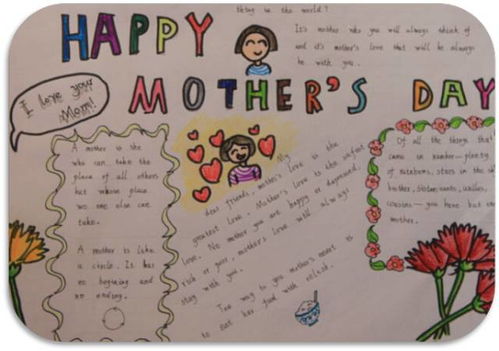 HAPPY
MOTHER'S DAY
thing in the world?
It's mother who you will always think of
and it's mother's love that will be always
be with you.
I love you
Mom!
A mother is she
who can take the
place of all others
but whose place
no one else can
take.
A mother is like
a circle. It has
no beginning and
no ending.
My
dear friends, mother's love is the
greatest love. Mother's love is the
love. No mother you are happy or depressed,
rich or poor, mother's love will always
stay with you.
The way to you mother's heart is
to eat her food with relish.
Of all the things that
came in number—plenty
of rainbows, stars in the sk
brother, sisters, aunts, uncles,
cousins—you have but one
mother.